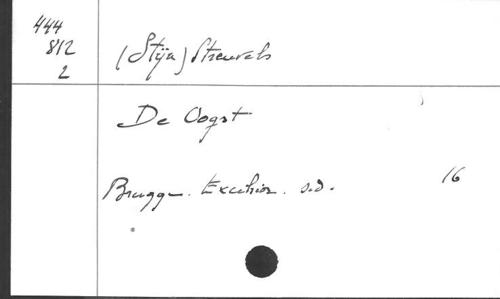 444
812
2
(Stijn) Streuvels
De Oogst
Brugge. Excelsior. s.d. 16